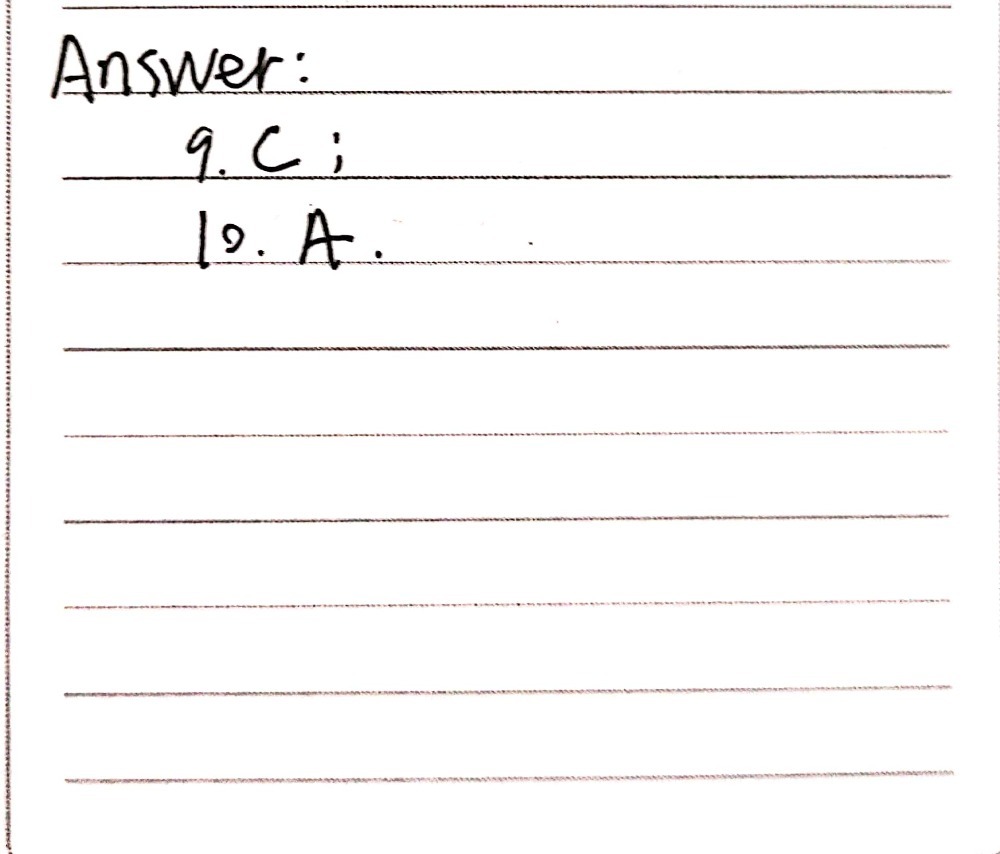 Answer:
9. C;
10. A.